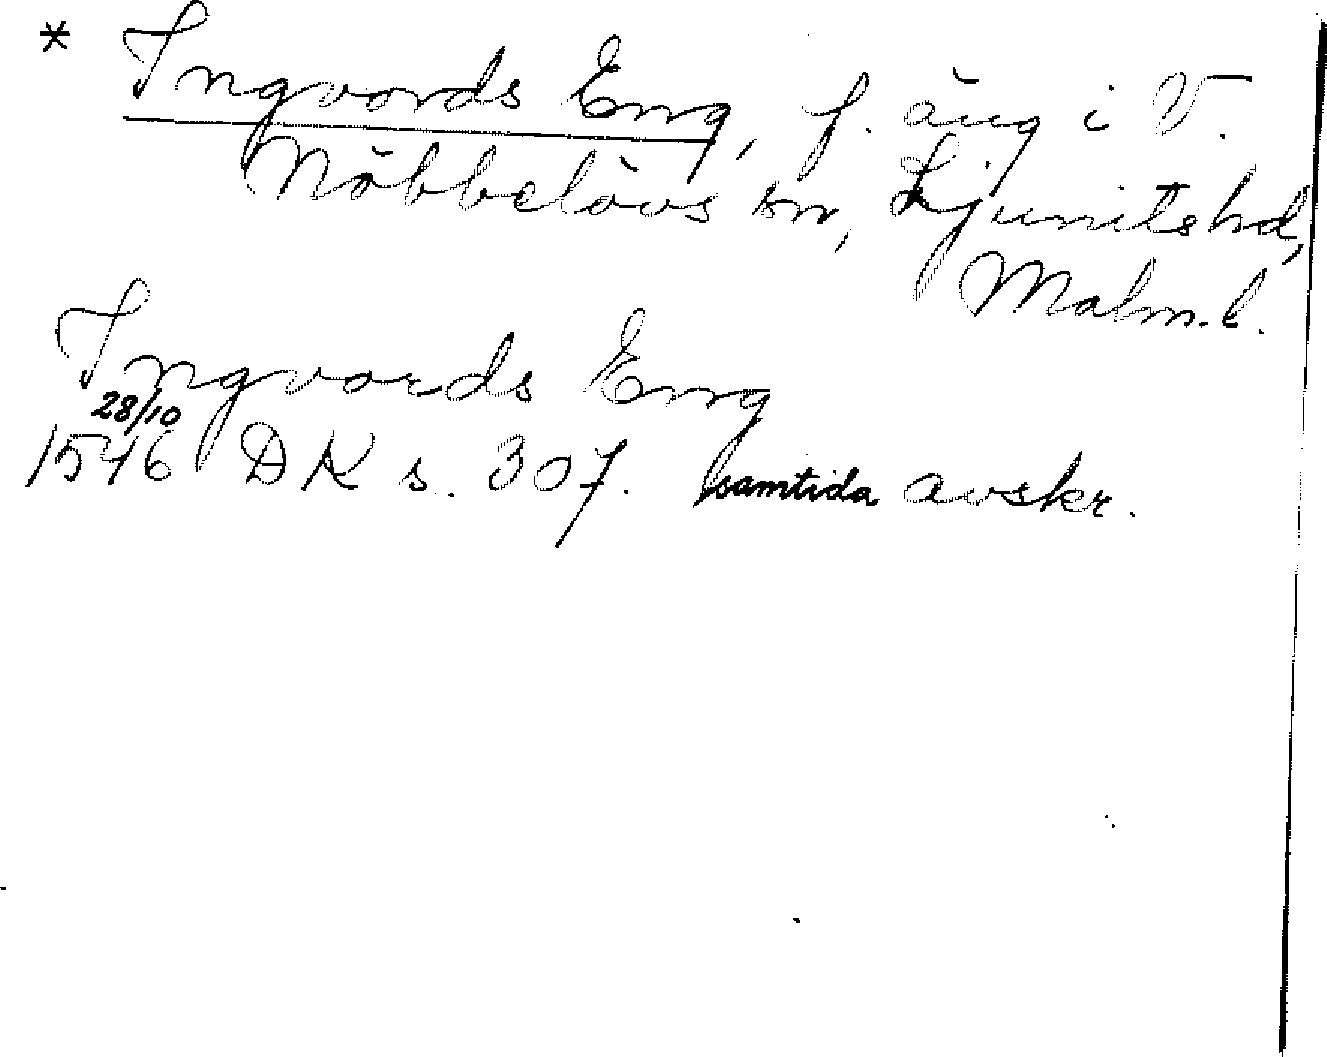 * Ingvords Eng, f. äng i V.
Nöbbelövs sn, Ljunits hd,
Malm. l.
Ingvords Eng
28/10
1546 DK s. 307. samtida avskr.